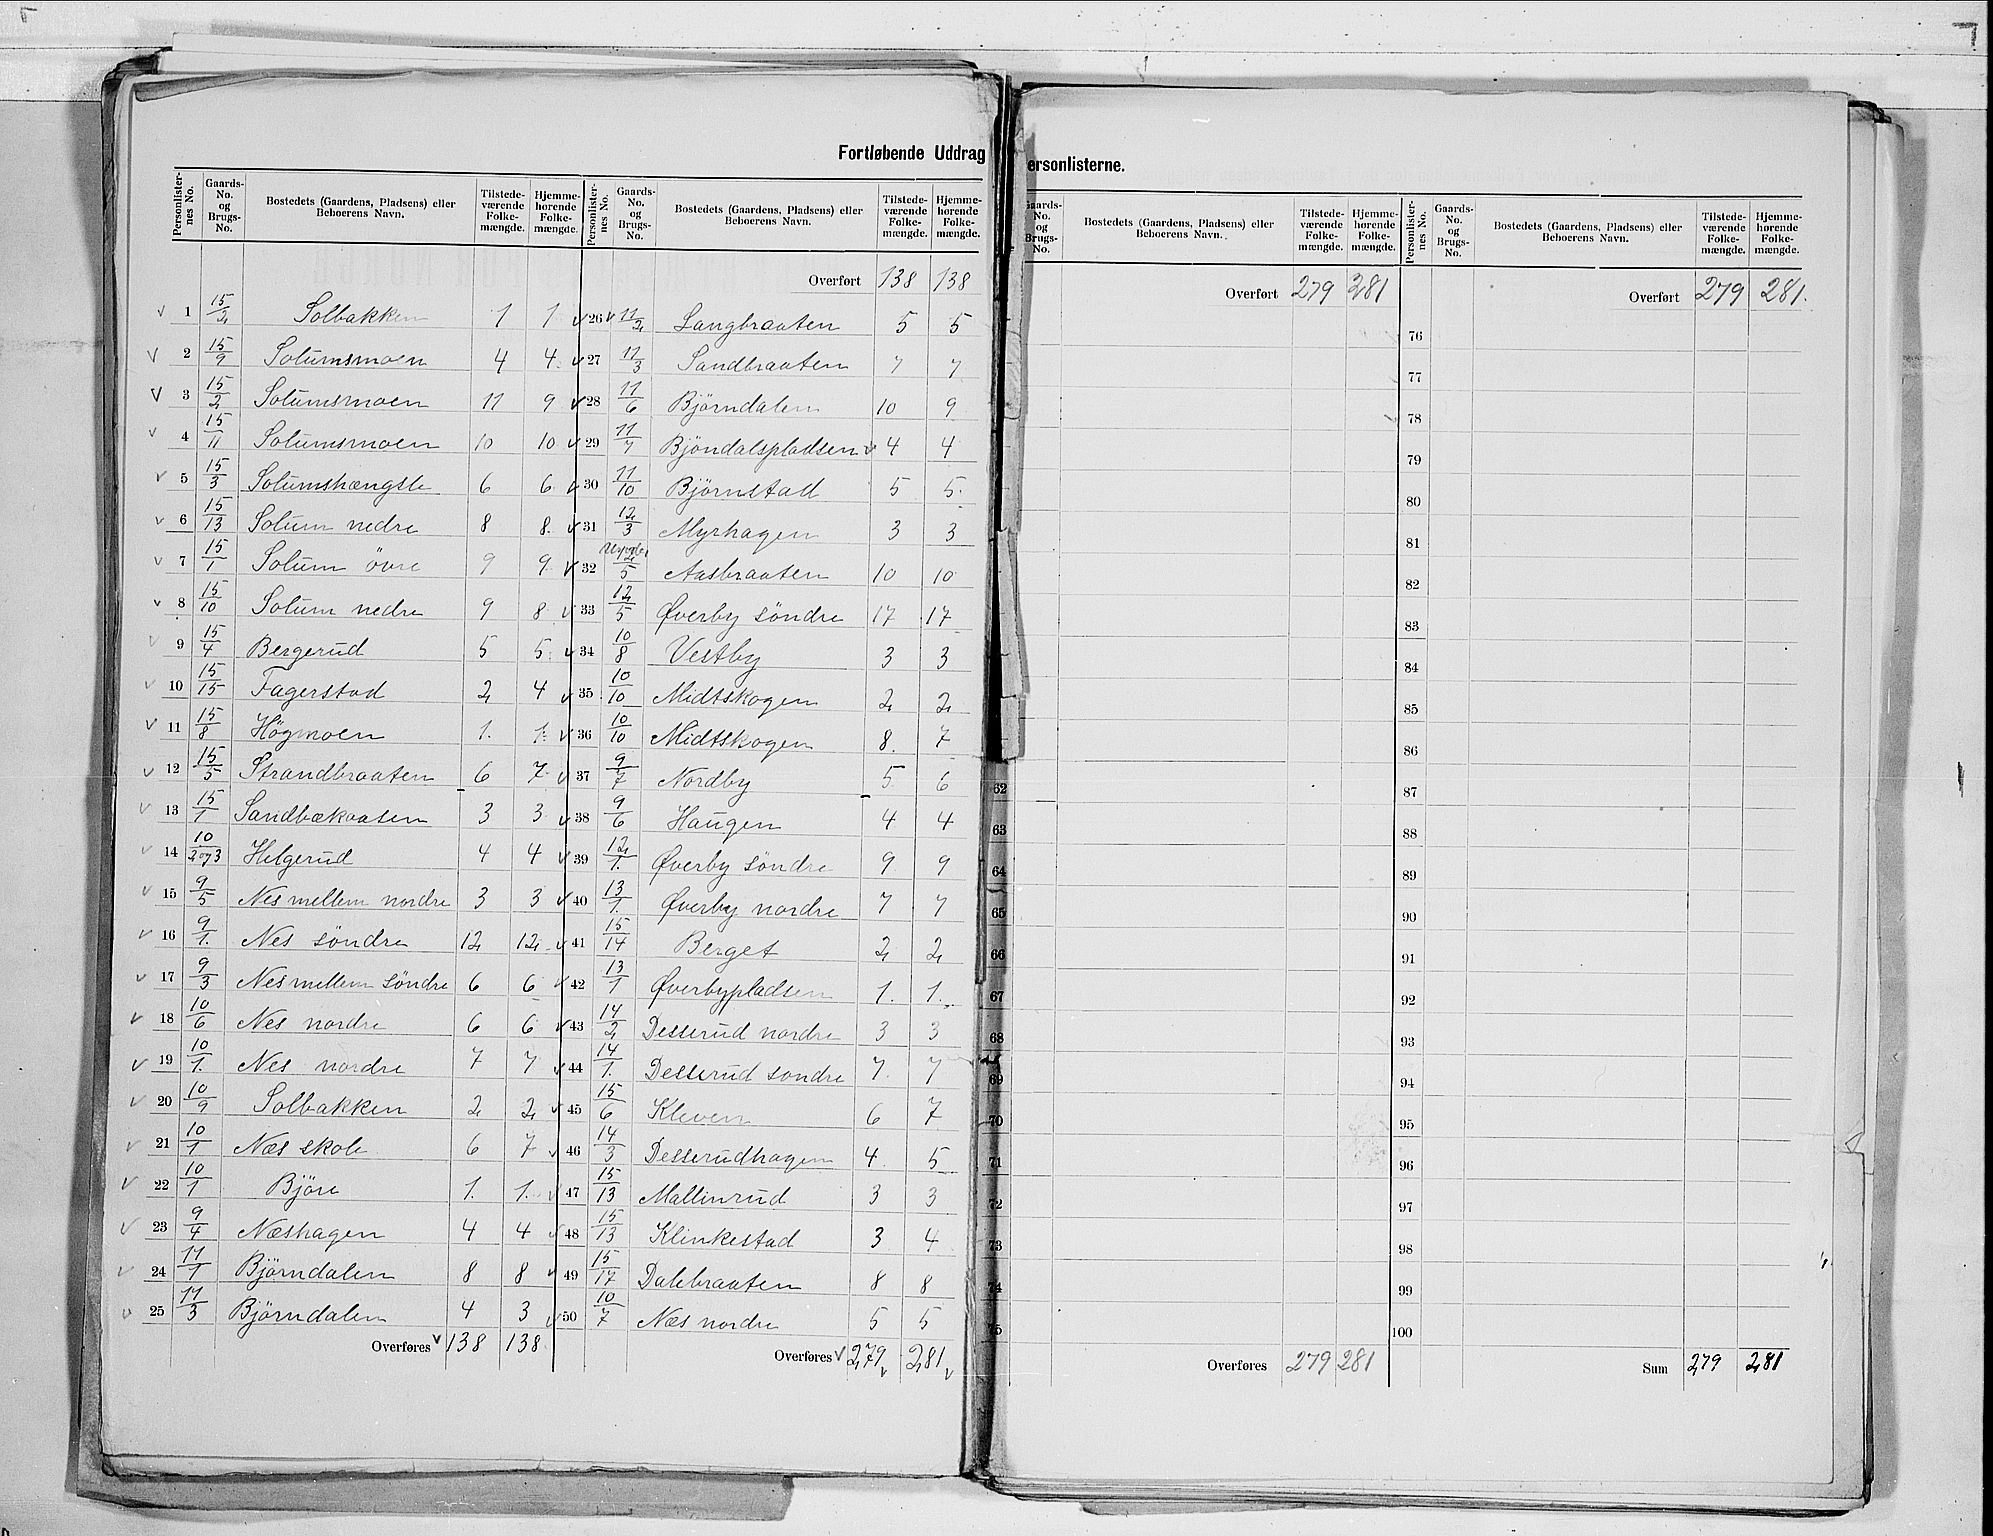 Fortløbende Uddrag
ersonlisterne.
Personlister-nes No. Gaards-No. og Brugs-No. Bostedets (Gaardens, Pladsens) eller Beboerens Navn. Tilstede-værende Folke-mængde. Hjemme-hørende Folke-mængde.
1 15/2 Solbakken 1 1
2 15/9 Solumsmoen 4 4
3 15/2 Solumsmoen 11 9
4 15/11 Solumsmoen 10 10
5 15/3 Solumshængsle 6 6
6 15/13 Solum nedre 8 8
7 15/1 Solum övre 9 9
8 15/10 Solum nedre 9 8
9 15/4 Bergerud 5 5
10 15/15 Fagerstad 2 4
11 15/8 Högmoen 1. 1.
12 15/5 Strandbraaten 6 7
13 15/1 Sandbækaasen 3 3
14 10/2 og 3 Helgerud 4 4
15 9/5 Nes mellem nordre 3 3
16 9/1. Nes söndre 12 12
17 9/3 Nes mellem söndre 6 6
18 10/6 Nes nordre 6 6
19 10/1. Nes nordre 7 7
20 10/9 Solbakken 2 2
21 10/1 Næs skole 6 7
22 10/1 Björe 1. 1.
23 9/4 Næshagen 4 4
24 11/1 Björndalen 8 8
25 11/3 Björndalen 4 3
Overføres 138 138
Personlister-nes No. Gaards-No. og Brugs-No. Bostedets (Gaardens, Pladsens) eller Beboerens Navn. Tilstede-værende Folke-mængde. Hjemme-hørende Folke-mængde.
Overført 138 138
26 11/2 Langbraaten 5 5
27 11/3 Sandbraaten 7 7
28 11/6 Björndalen 10 9
29 11/7 Bjöndalspladsen 4 4
30 11/10 Björnstad 5 5
31 12/3 Myrhagen 3 3
32 12/5 Aasbraaten 10 10
33 12/5 Øverby söndre 17 17
34 10/8 Vestby 3 3
35 10/10 Midtskogen 2 2
36 10/10 Midtskogen 8. 7
37 9/7 Nordby 5 6
38 9/6 Haugen 4 4
39 12/1. Øverby söndre 9 9
40 13/1. Øverby nordre 7 7
41 15/14 Berget 2 2
42 13/1 Øverbypladsen 1. 1.
43 14/2 Desserud nordre 3 3
44 14/1. Desserud sondre 7. 7
45 15/6 Kleven 6 7
46 14/3 Desserudhagen 4. 5
47 15/13 Mallinrud 3 3
48 15/13 Klinkestad 3 4
49 15/17 Dalebraaten 8 8
50 10/7 Næs nordre 5 5
Overføres 279 281
Gaards-No. og Brugs-No. Bostedets (Gaardens, Pladsens) eller Beboerens Navn. Tilstede-værende Folke-mængde. Hjemme-hørende Folke-mængde.
Overført 279 281
62
63
64
65
66
67
68
69
70
71
72
73
74
75
Overføres 279 281
Personlister-nes No. Gaards-No. og Brugs-No. Bostedets (Gaardens, Pladsens) eller Beboerens Navn. Tilstede-værende Folke-mængde. Hjemme-hørende Folke-mængde.
Overført 279 281.
76
77
78
79
80
81
82
83
84
85
86
87
88
89
90
91
92
93
94
95
96
97
98
99
100
Sum 279 281